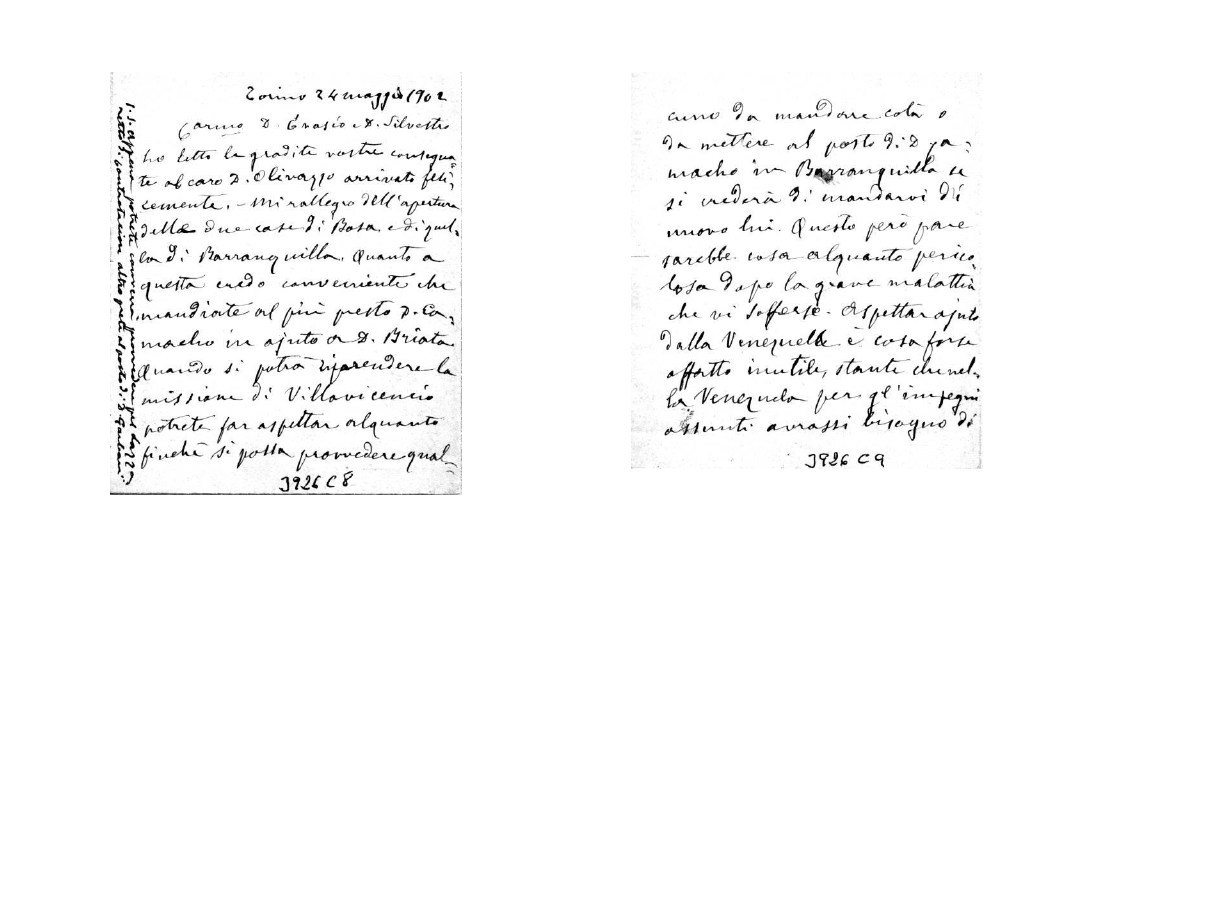 Torino 24 maggio 1902
Carmo D. Evasio e D. Silvestro
ho letto le gradite vostre consegna-
te al caro D. Olivazzo arrivato feli-
cemente. - Mi rallegro dell'apertura
delle due case di Bosa e di quel-
la di Barranquilla. Quanto a
questa credo conveniente che
mandiate al più presto D. Ca-
macho in ajuto a D. Briata
Quando si potrà riprendere la
missione di Villavicencio
potrete far aspettar alquanto
finchè si possa provvedere qual-
J926 C8
P.S. Appena potrete converrà provvedere pel Lazza-
retto di Contratacion altro prete al posto di D. Garbari
cuno da mandare colà o
da mettere al posto di D Ca-
macho in Barranquilla se
si crederà di mandarvi di
nuovo lui. Questo però pare
sarebbe cosa alquanto perico-
losa dopo la grave malattia
che vi sofferse. Aspettar ajuto
dalla Venezuella è cosa forse
affatto inutile, stante che nel-
la Venezuela per gl'impegni
assunti avrassi bisogno di
J926 C9